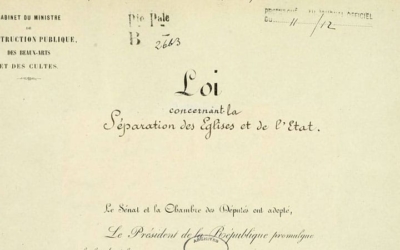 CABINET DU MINISTRE
DE
INSTRUCTION PUBLIQUE,
DES BEAUX-ARTS
ET DES CULTES.
B 2663
11/12
Loi
concernant la
Séparation des Eglises et de l'Etat.
Le Sénat et la Chambre des Députés ont adopté,
Le Président de la République promulgue